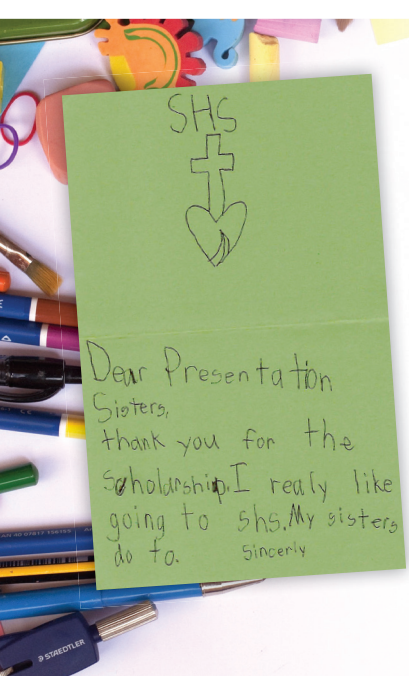 SHS
Dear Presentation
Sisters,
thank you for the
Scholarship. I realy like
going to shs. My sisters
do to. Sincerly
STAEDTLER